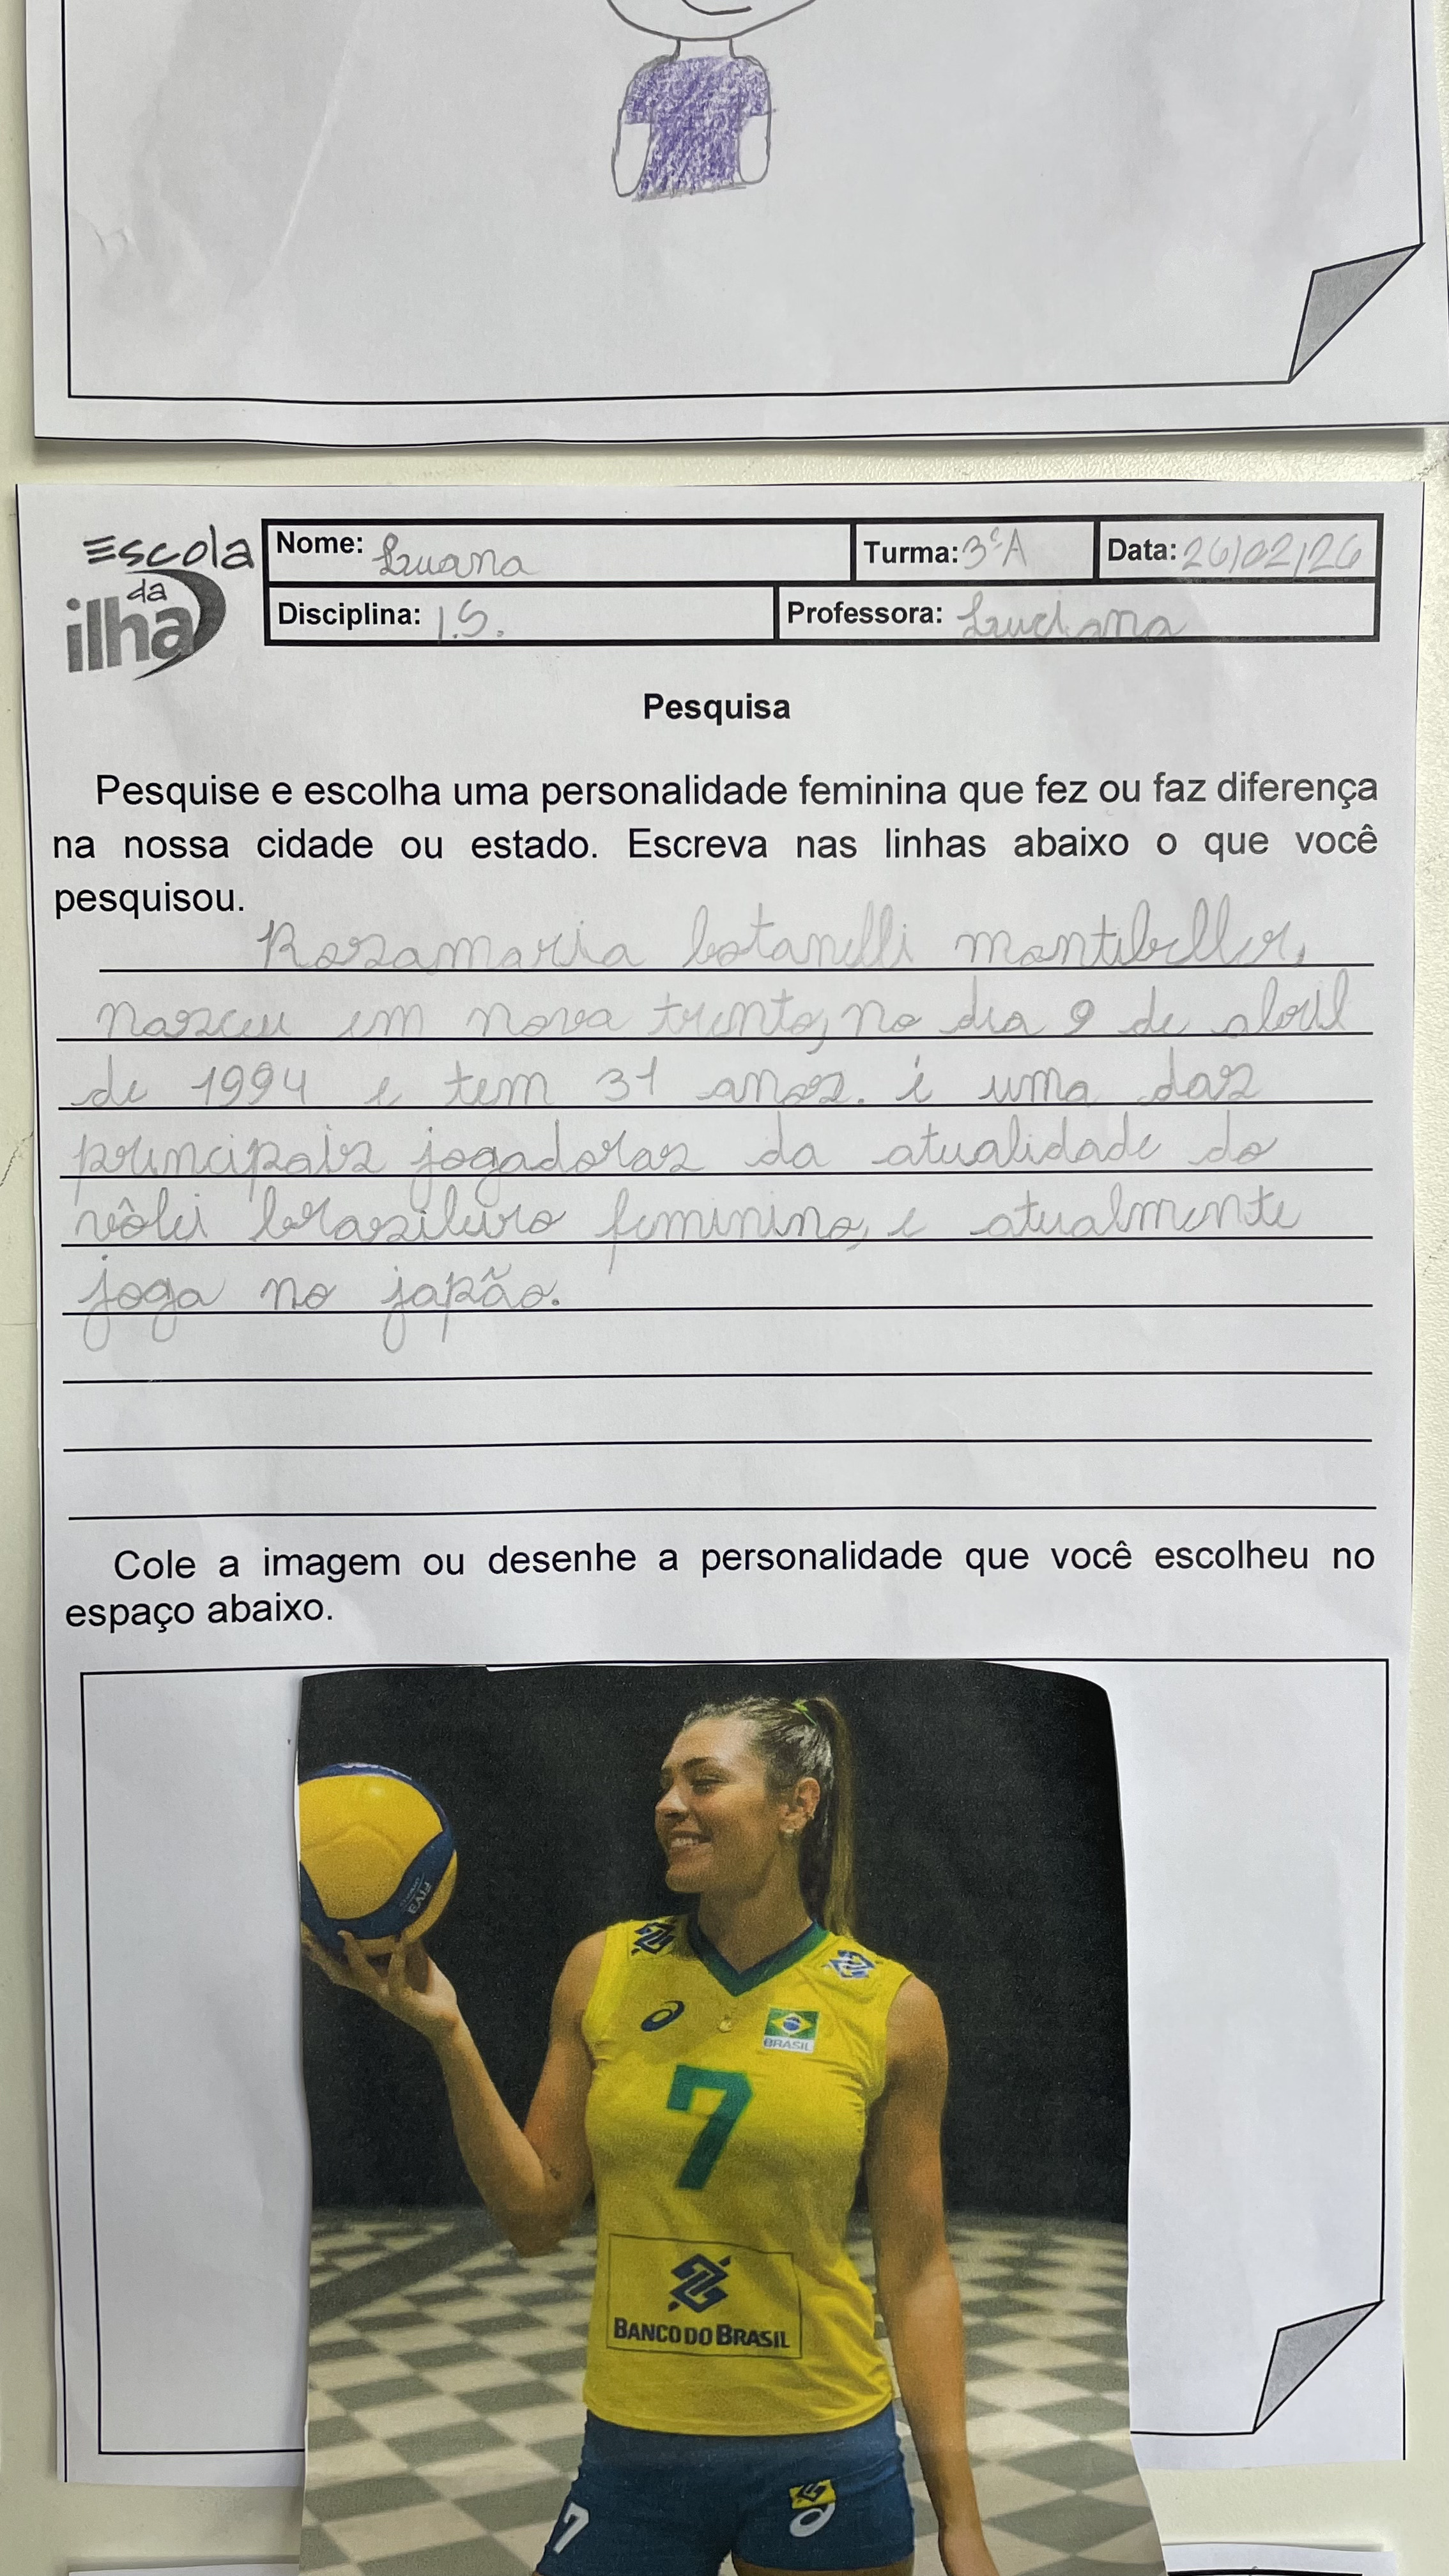 Escola
da
ilha
Nome: Luana
Turma: 3ºA
Data: 26/02/26
Disciplina: I.S.
Professora: Luciana
Pesquisa
Pesquise e escolha uma personalidade feminina que fez ou faz diferença
na nossa cidade ou estado. Escreva nas linhas abaixo o que você
pesquisou.
Rosamaria botanelli montibeller,
nasceu em nova trento, no dia 9 de abril
de 1994 e tem 31 anos. é uma das
principais jogadoras da atualidade do
vôlei brasileiro feminino, e atualmente
joga no japão.
Cole a imagem ou desenhe a personalidade que você escolheu no
espaço abaixo.
FIVB
BRASIL
7
BANCO DO BRASIL
7